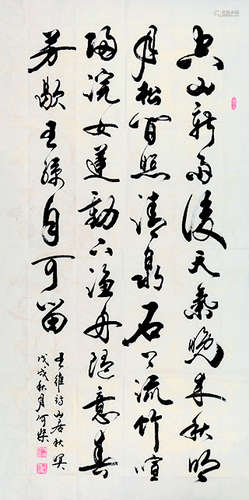 空山新雨後天氣晚來秋明
月松間照清泉石上流竹喧
歸浣女蓮動下漁舟隨意春
芳歇王孫自可留
王維詩山居秋暝
戊戌秋月何